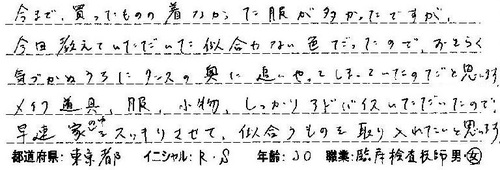 今まで、買ったものの着なかった服が多かったですが、
今回教えていただいた似合わない色だったので、おそらく
気づかぬうちにタンスの奥に追いやってしまっていたのだと思います
メイク道具、服、小物、しっかりアドバイスいただいたので、
早速家の中をスッキリさせて、似合うものを取り入れたいと思います
都道府県: 東京都 イニシャル: R.S 年齢: 30 職業: 臨床検査技師 男・女